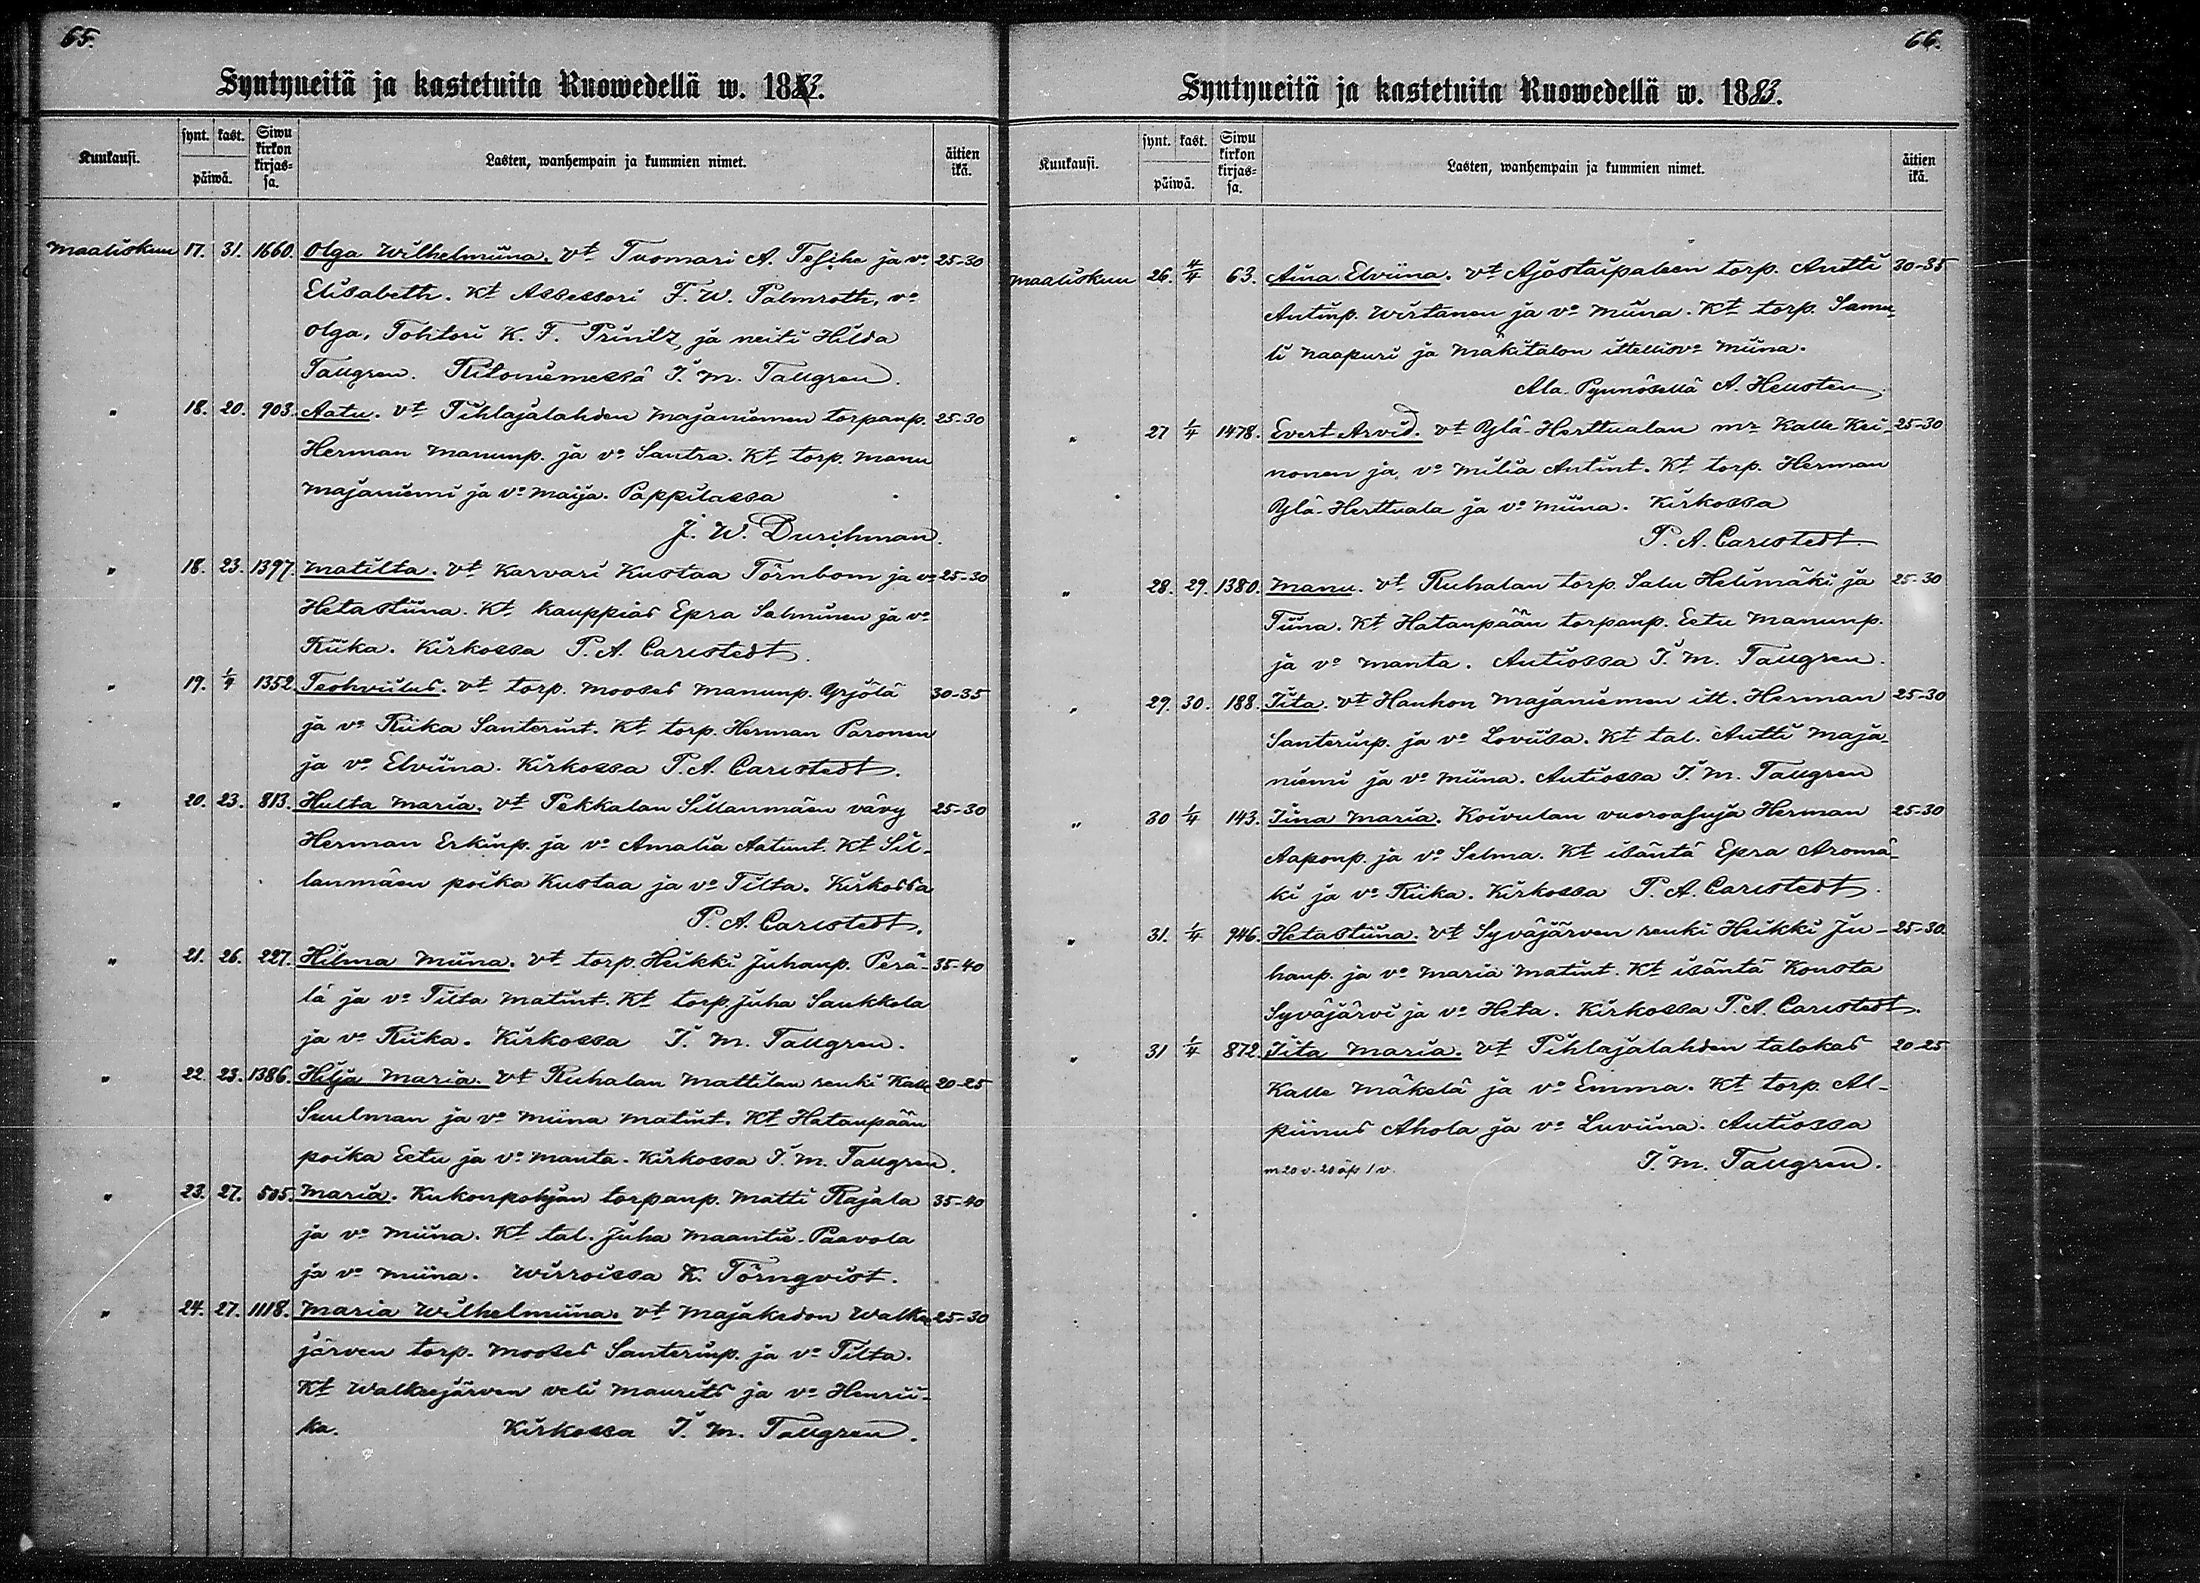 65.
Syntyneitä ja kastetuita Ruowedellä w. 1883.
Kuukausi.
synt. kast.
päiwä.
Siwu
kirkon
kirjas-
sa.
Lasten, wanhempain ja kummien nimet.
äitien
ikä.
Maaliskuu 17. 31. 1660. Olga Wilhelmiina. vt Tuomari A. Tesche ja vo 25-30
Elisabeth. Kt Assessori F. W. Palmroth, vo
Olga, Tohtori K. F. Printz, ja neiti Hilda
Tallgren. Ritoniemessä I. M. Tallgren.
" 18. 20. 903. Aatu. vt Pihlajalahden Majaniemen torpanp. 25-30
Herman Manunp. ja vo Santra. Kt torp. Manu
Majaniemi ja vo Maija. Pappilassa
J. W. Durchman.
" 18. 23. 1397. Matilta. vt Karvari Kustaa Törnbom ja vo 25-30
Hetastiina. Kt kauppias Epra Salminen ja vo
Riika. Kirkossa P. A. Carlstedt.
" 19. 1/4 1352. Teohviilus. vt torp. Mooses Manunp. Yrjölä 30-35
ja vo Riika Santerint. Kt torp. Herman Paronen
ja vo Elviina. Kirkossa P. A. Carlstedt.
" 20. 23. 813. Hulta Maria. vt Pekkalan Sillanmäen vävy 25-30
Herman Erkinp. ja vo Amalia Aatunt. Kt Sil-
lanmäen poika Kustaa ja vo Tilta. Kirkossa
P. A. Carlstedt.
" 21. 26. 227. Hilma Miina. vt torp. Heikki Juhanp. Perä- 35-40
lä ja vo Tilta Matint. Kt torp. Juha Saukkola
ja vo Riika. Kirkossa I. M. Tallgren.
" 22 23. 1386. Hilja Maria. vt Ruhalan Mattilan renki Kalle 20-25
Suulman ja vo Miina Matint. Kt Hatanpään
poika Eetu ja vo Manta. Kirkossa I. M. Tallgren.
" 23. 27. 505. Maria. Kukonpohjan torpanp. Matti Rajala 35-40
ja vo Miina. Kt tal. Juha Maantie-Paavola
ja vo Miina. Wirroissa K. Törnqvist.
" 24. 27. 1118. Maria Wilhelmiina. vt Majakedon Walkea 25-30
järven torp. Mooses Santerinp. ja vo Tilta.
Kt Walkeejärven veli Maurits ja vo Henrii-
ka. Kirkossa I. M. Tallgren.
66.
Syntyneitä ja kastetuita Ruowedellä w. 1883.
Kuukausi.
synt. kast.
päiwä.
Siwu
kirkon
kirjas-
sa.
Lasten, wanhempain ja kummien nimet.
äitien
ikä.
Maaliskuu 26. 4/4 63. Aina Elviina. vt Ajostaipaleen torp. Antti 30-35
Antinp. Wirtanen ja vo Miina. Kt torp. Samu-
li Naapuri ja Mäkitalon ittellisvo Miina.
Ala-Pynnösellä A. Hellsten.
" 27 1/4 1478. Evert Arvid. vt Ylä-Herttualan mr Kalle Kei- 25-30
nonen ja vo Milia Antint. Kt torp. Herman
Ylä-Herttuala ja vo Miina. Kirkossa
P. A. Carlstedt.
" 28. 29. 1380. Manu. vt Ruhalan torp. Salu Helimäki ja 25-30
Tiina. Kt Hatanpään torpanp. Eetu Manunp.
ja vo Manta. Autiossa I. M. Tallgren.
" 29. 30. 188. Iita. vt Hanhon Majaniemen itt. Herman 25-30
Santerinp. ja vo Loviisa. Kt tal. Antti Maja-
niemi ja vo Miina. Autiossa I. M. Tallgren
" 30 1/4 143. Iina Maria. Koivulan vuoroasuja Herman 25-30
Aaponp. ja vo Selma. Kt isäntä Epra Aromä-
ki ja vo Riika. Kirkossa P. A. Carlstedt.
" 31. 1/4 946. Hetastiina. vt Syväjärven renki Heikki Ju- 25-30.
hanp. ja vo Maria Matint. Kt isäntä Konsta
Syväjärvi ja vo Heta. Kirkossa P. A. Carlstedt.
" 31 1/4 872. Iita Maria. vt Pihlajalahden talokas 20-25
Kalle Mäkelä ja vo Emma. Kt torp. Al-
piinus Ahola ja vo Luviina. Autiossa
I. M. Tallgren.
m 20 v. 20 äps 1 v.